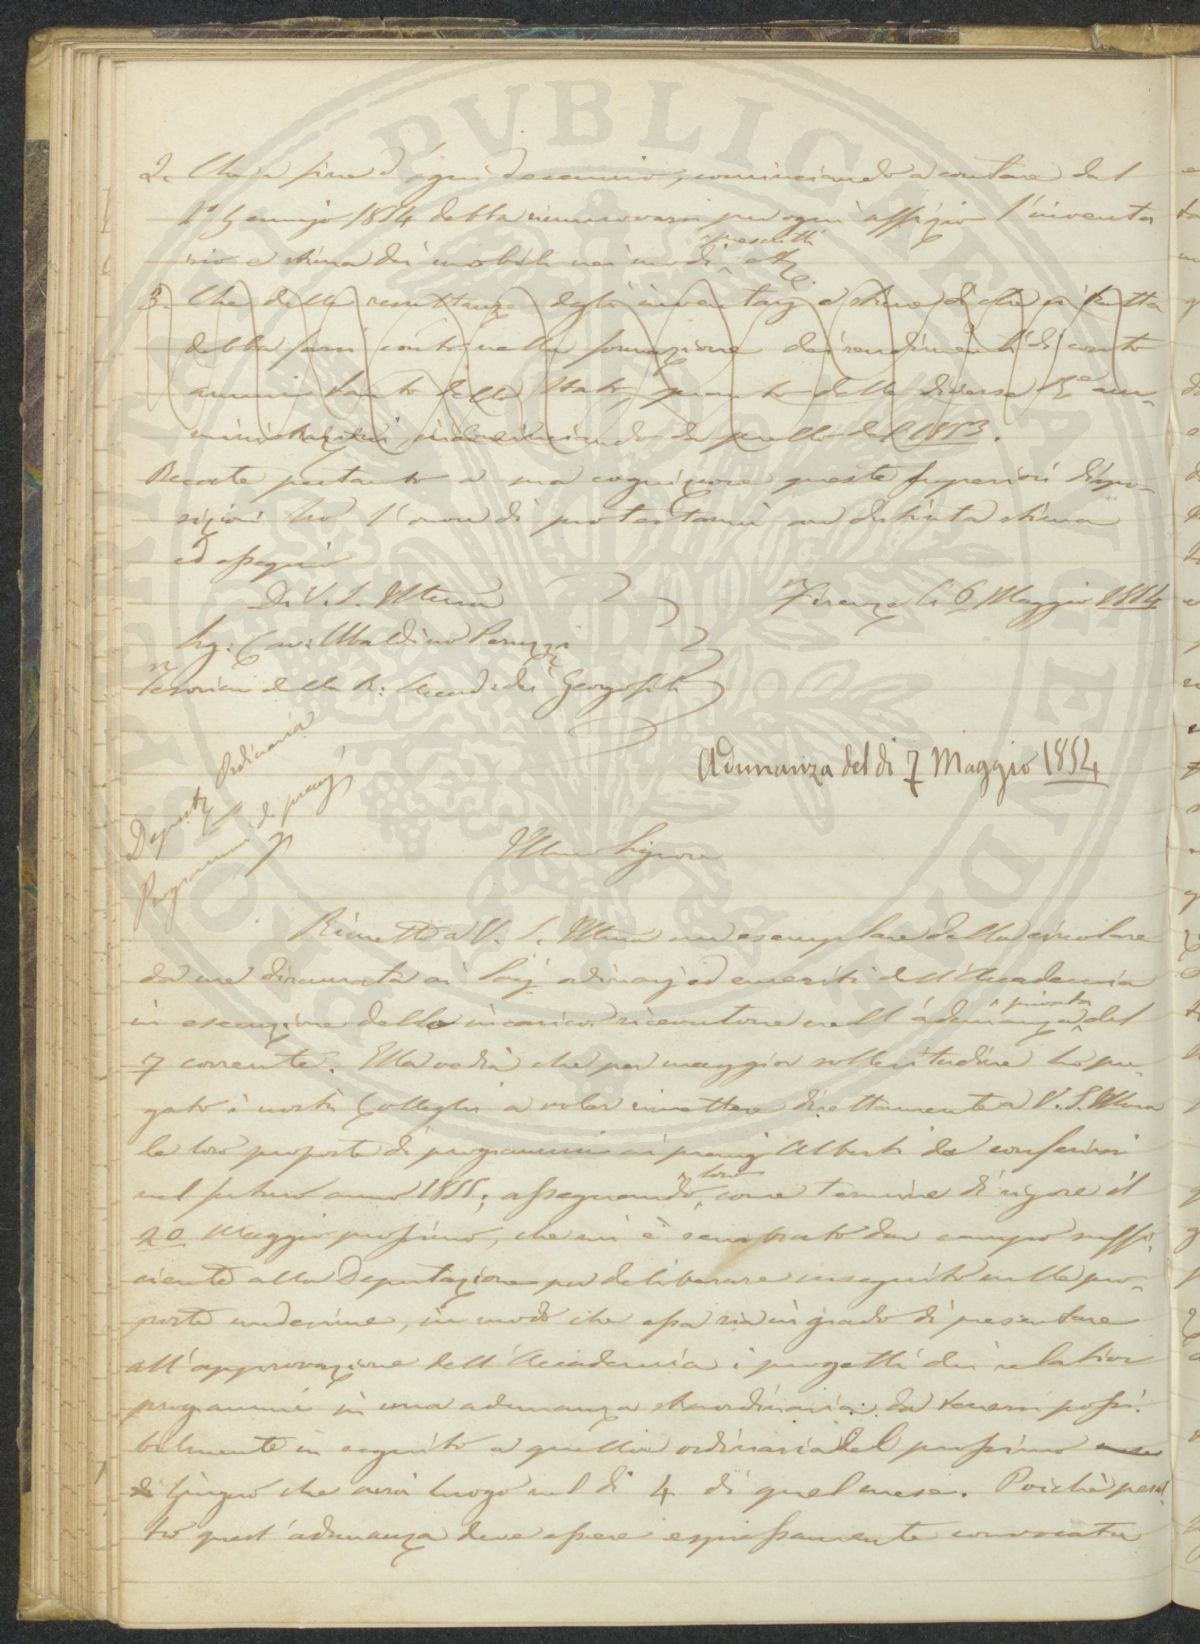 2. Che a fine d'ogni decennio, cominciando a contare dal
1° Gennajo 1854 debba rinnuovarsi per ogni affizio l'inventa
rio e stima dei mobili nei modi prescritti etc.
3. Che delle resultanze degli inventarj e stime di che si tratta
debba farsi conto nella formazione dei rendimenti di conto
annui tanto dello Stato, quanto delle diverse RR. am-
ministrazioni incominciando da quello del 1853.
Recate pertanto a sua cognizione queste superiori dispo-
sizioni ho l'onore di protestarmi con distinta stima
ed ossequio
Di V. S. Illma
Firenze li 6 Maggio 1854
Sig: Cav: Ubaldino Peruzzi
Tesoriere della R: Accad dei Georgofili
Adunanza del di 7 Maggio 1854
Deputaz Ordinaria
Programmi di premj
Illmo Signore
Rimetto a V. S. Illma un esemplare della circolare
da me diramata ai Socj ordinarj ed emeriti dell'Accademia
in esecuzione dello incarico ricevutone nell'adunanza privata del
7 corrente. Ella vedrà che per maggior sollecitudine ho pre-
gato i nostri Colleghi a voler rimettere direttamente a V. S. Illma
le loro proposte di programmi ai premj Alberti da conferirsi
nel futuro anno 1855; assegnando loro come termine di rigore il
20 Maggio prossimo, che mi è sembrato dar campo suffi-
ciente alla Deputazione per deliberare in seguito sulle pro-
poste medesime, in modo che essa sia in grado di presentare
all'approvazione dell'Accademia i progetti dei relativi
programmi in una adunanza straordinaria da tenersi possi-
bilmente in seguito a quella ordinaria del prossimo mese
di Giugno che avrà luogo nel dì 4 di quel mese. Poichè peral
tro quest'adunanza deve essere espressamente convocata